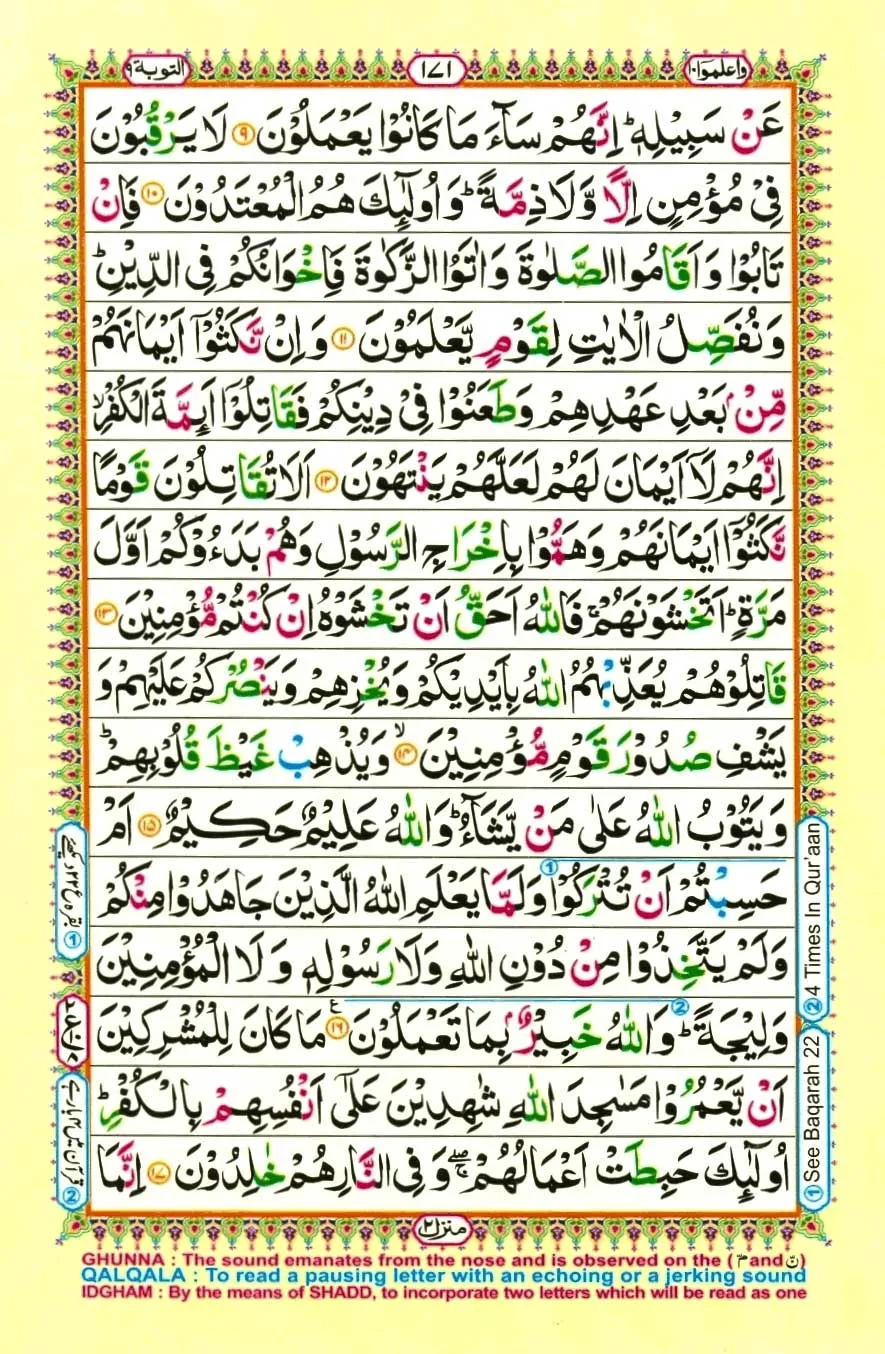 التوبة ٩
١٧١
واعلموا ١٠
عَنْ سَبِيْلِهٖ ؕ اِنَّهُمْ سَآءَ مَا كَانُوْا يَعْمَلُوْنَ ۹ لَا يَرْقُبُوْنَ
فِيْ مُؤْمِنٍ اِلًّا وَّلَا ذِمَّةً ؕ وَاُولٰٓئِكَ هُمُ الْمُعْتَدُوْنَ ۱۰ فَاِنْ
تَابُوْا وَاَقَامُوا الصَّلٰوةَ وَاٰتَوُا الزَّكٰوةَ فَاِخْوَانُكُمْ فِي الدِّيْنِ ؕ
وَنُفَصِّلُ الْاٰيٰتِ لِقَوْمٍ يَّعْلَمُوْنَ ۱۱ وَاِنْ نَّكَثُوْۤا اَيْمَانَهُمْ
مِّنْۢ بَعْدِ عَهْدِهِمْ وَطَعَنُوْا فِيْ دِيْنِكُمْ فَقَاتِلُوْۤا اَئِمَّةَ الْكُفْرِ ۙ
اِنَّهُمْ لَاۤ اَيْمَانَ لَهُمْ لَعَلَّهُمْ يَنْتَهُوْنَ ۱۲ اَلَا تُقَاتِلُوْنَ قَوْمًا
نَّكَثُوْۤا اَيْمَانَهُمْ وَهَمُّوْا بِاِخْرَاجِ الرَّسُوْلِ وَهُمْ بَدَءُوْكُمْ اَوَّلَ
مَرَّةٍ ؕ اَتَخْشَوْنَهُمْ ۚ فَاللّٰهُ اَحَقُّ اَنْ تَخْشَوْهُ اِنْ كُنْتُمْ مُّؤْمِنِيْنَ ۱۳
قَاتِلُوْهُمْ يُعَذِّبْهُمُ اللّٰهُ بِاَيْدِيْكُمْ وَيُخْزِهِمْ وَيَنْصُرْكُمْ عَلَيْهِمْ وَ
يَشْفِ صُدُوْرَ قَوْمٍ مُّؤْمِنِيْنَ ۙ ۱۴ وَيُذْهِبْ غَيْظَ قُلُوْبِهِمْ ؕ
وَيَتُوْبُ اللّٰهُ عَلٰى مَنْ يَّشَآءُ ؕ وَاللّٰهُ عَلِيْمٌ حَكِيْمٌ ۱۵ اَمْ
حَسِبْتُمْ اَنْ تُتْرَكُوْا وَلَمَّا يَعْلَمِ اللّٰهُ الَّذِيْنَ جَاهَدُوْا مِنْكُمْ
وَلَمْ يَتَّخِذُوْا مِنْ دُوْنِ اللّٰهِ وَلَا رَسُوْلِهٖ وَلَا الْمُؤْمِنِيْنَ
وَلِيْجَةً ؕ وَاللّٰهُ خَبِيْرٌۢ بِمَا تَعْمَلُوْنَ ۱۶ مَا كَانَ لِلْمُشْرِكِيْنَ
اَنْ يَّعْمُرُوْا مَسٰجِدَ اللّٰهِ شٰهِدِيْنَ عَلٰۤى اَنْفُسِهِمْ بِالْكُفْرِ ؕ
اُولٰٓئِكَ حَبِطَتْ اَعْمَالُهُمْ ۖۚ وَفِي النَّارِ هُمْ خٰلِدُوْنَ ۱۷ اِنَّمَا
② 4 Times In Qur'aan
① See Baqarah 22
منزل ٢
GHUNNA : The sound emanates from the nose and is observed on the ( مّ and نّ )
QALQALA : To read a pausing letter with an echoing or a jerking sound
IDGHAM : By the means of SHADD, to incorporate two letters which will be read as one